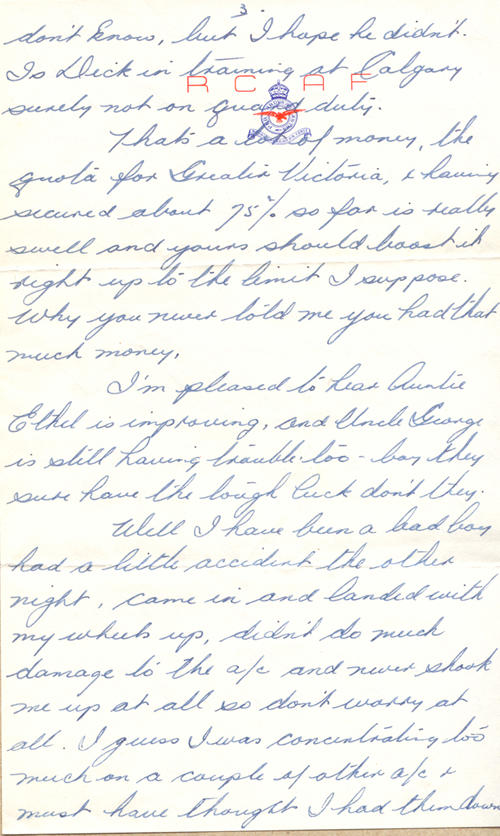 3.
don't know, but I hope he didn't.
Is Dick in training at Calgary
R C A F
surely not on guard duty.
Thats a lot of money, the
quota for Greater Victoria, & having
secured about 75% so far is really
swell and yours should boost it
right up to the limit I suppose.
Why you never told me you had that
much money.
I'm pleased to hear Auntie
Ethel is improving, and Uncle George
is still having trouble too - boy they
sure have the tough luck don't they.
Well I have been a bad boy
had a little accident the other
night, came in and landed with
my wheels up, didn't do much
damage to the a/c and never shook
me up at all so don't worry at
all. I guess I was concentrating too
much on a couple of other a/c &
must have thought I had them down